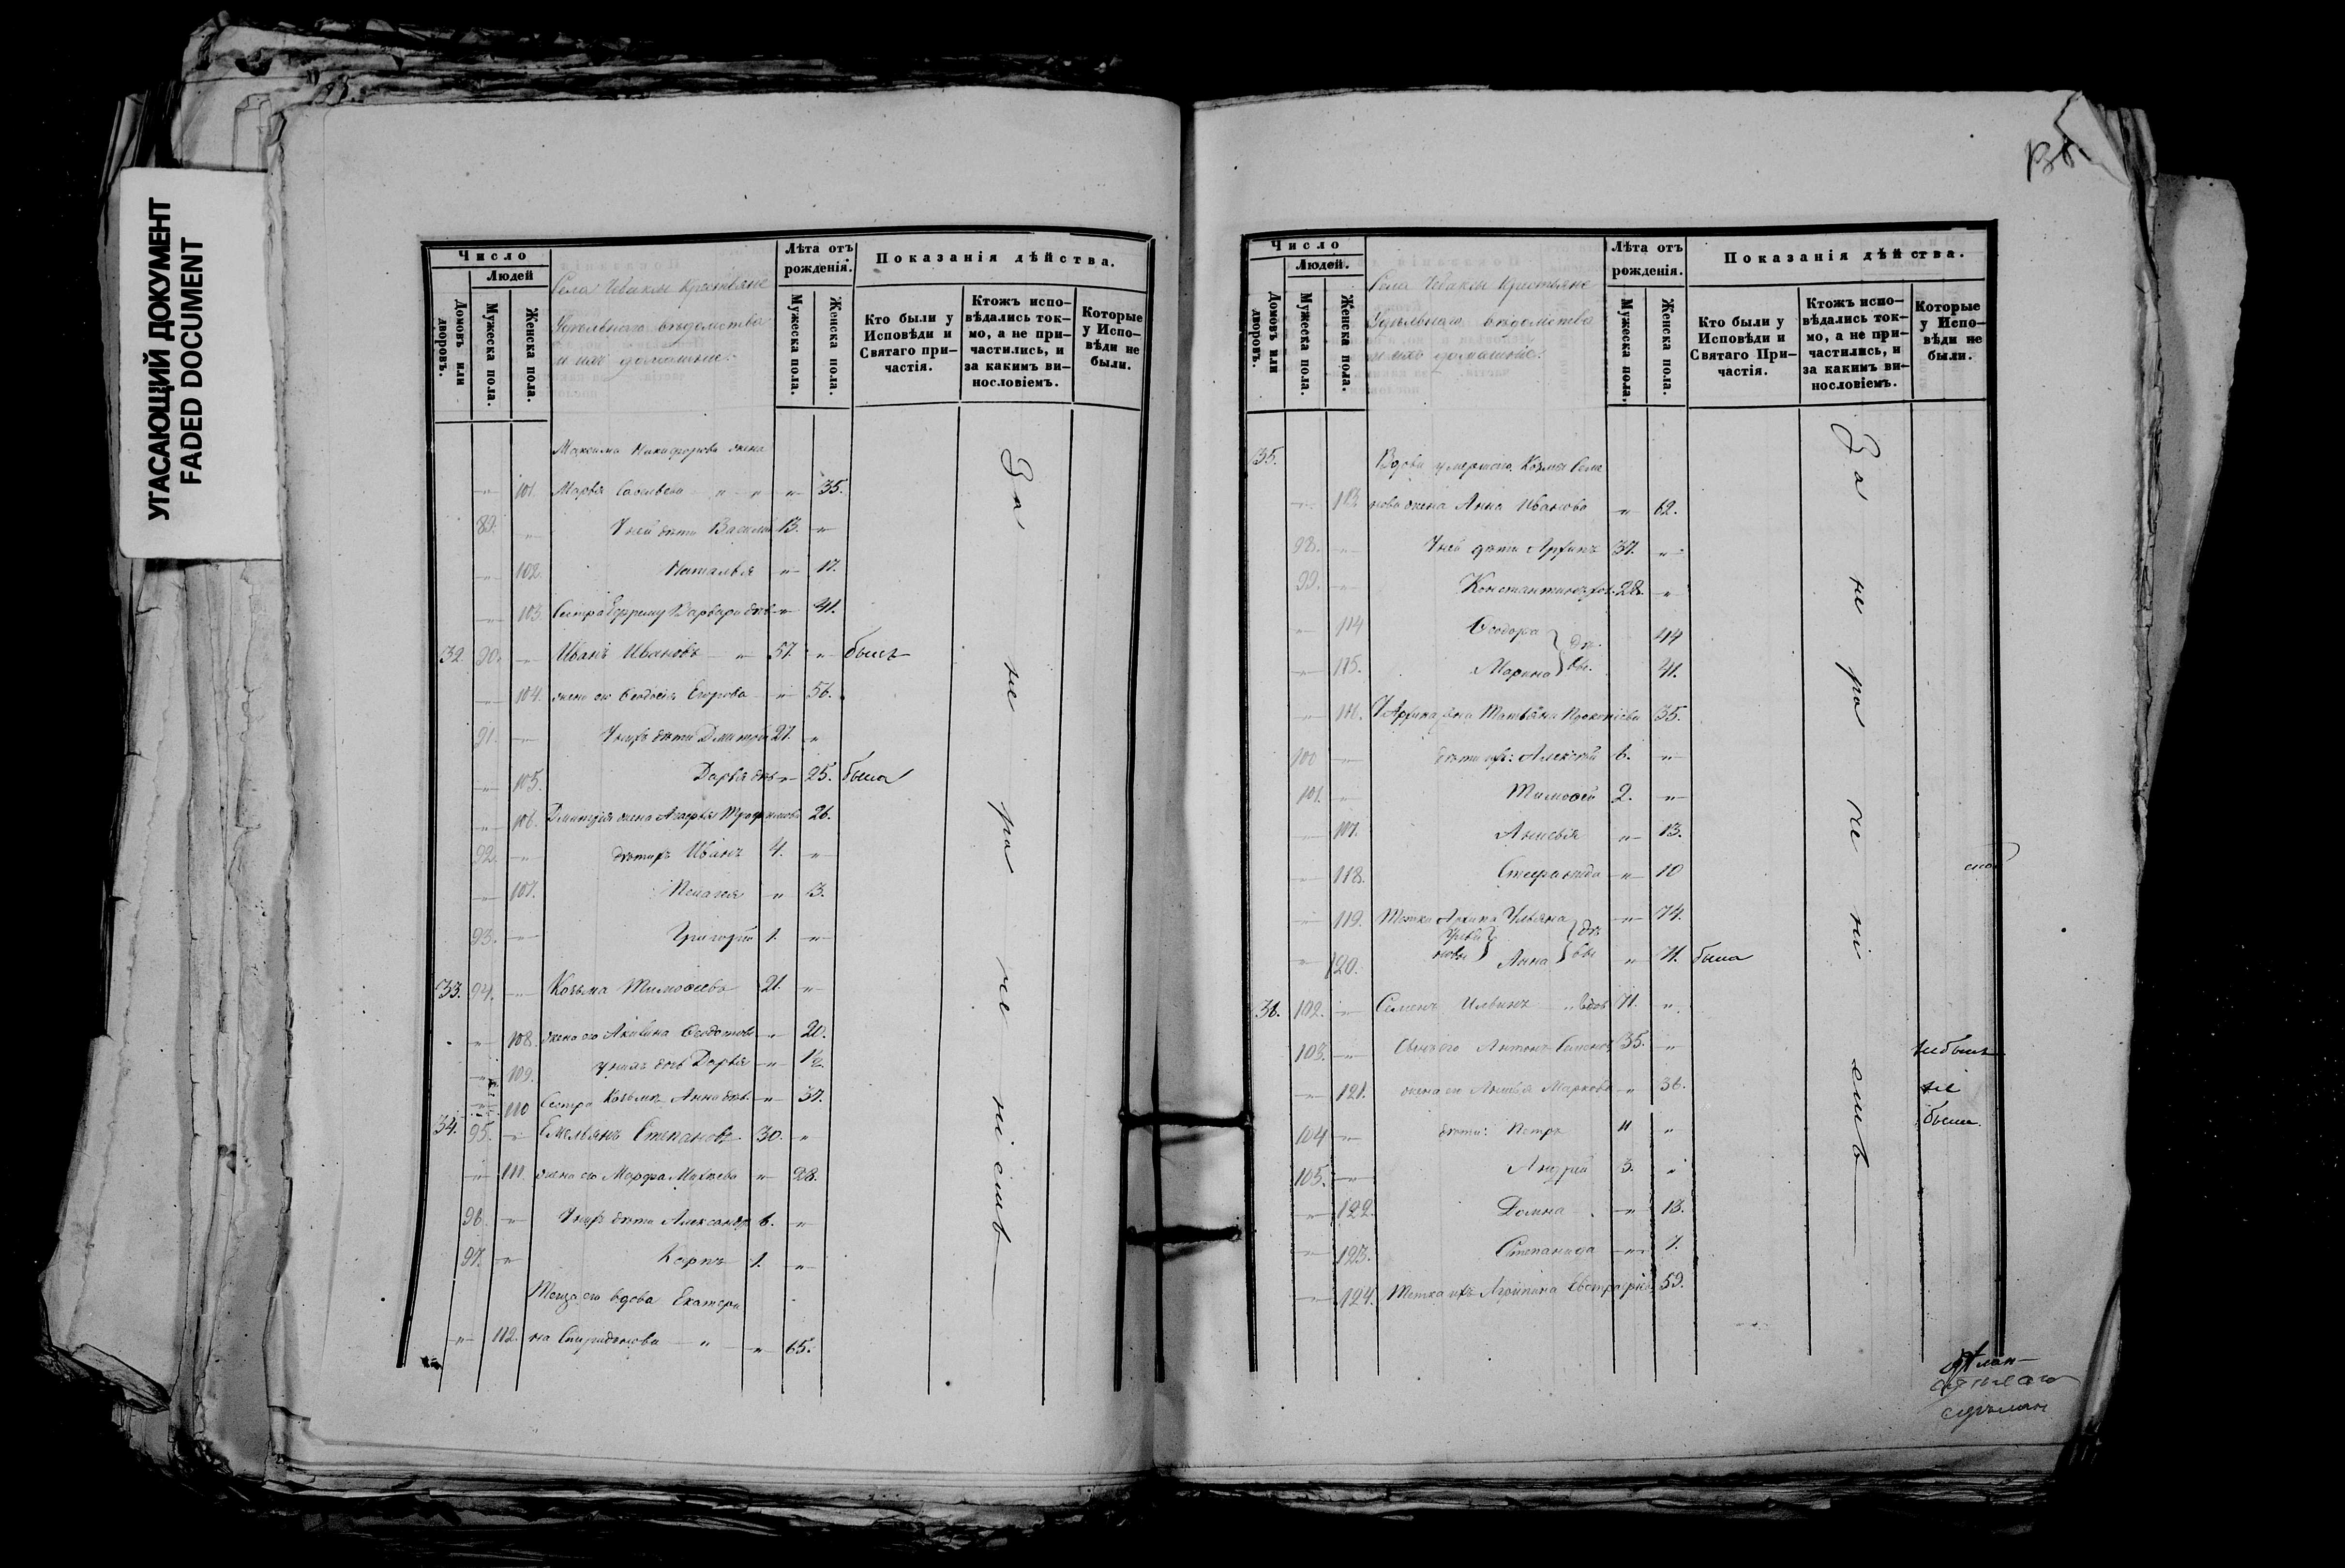 УГАСАЮЩИЙ ДОКУМЕНТ
FADED DOCUMENT
Число
Людей
Домовъ или дворовъ.
Мужеска пола.
Женска пола.
Села Чебаклы Крестьяне
Удельнаго ведомства
и ихъ домашніе:
Лѣта отъ рожденія.
Мужеска пола.
Женска пола.
Показанія дѣйства.
Кто были у Исповѣди и Святаго при-
частія.
Ктожъ испо-
вѣдались ток-
мо, а не при-
частились, и
за какимъ ви-
нословіемъ.
Которые
у Испо-
вѣди не
были.
Максима Никифорова жена
" 101. Марѳа Савельева " " " 35.
89. " У ней дѣти Василій 13. "
" 102. Наталья " 17.
" 103. Сестра Варвара дѣв. " 41.
32. 90. " Иванъ Ивановъ " 57. " былъ
" 104. жена его Ѳеодосія Егорова " 56.
91. " У нихъ дѣти Дмитрій 27. "
" 105. Дарья дѣв. " 25. была
" 106. Дмитрія жена Агафья Трофимова 26.
92. " дѣти ихъ Иванъ 4. "
" 107. Пелагея " 3.
93. " Григорій 1. "
33. 94. " Козьма Тимоѳеевъ 21. "
" 108. жена его Акилина Ѳедотова " 20.
" 109. у нихъ дочь Дарья " 1½
" 110 Сестра Козьмы Анна дѣв. " 37.
34. 95. " Емельянъ Степановъ 30. "
" 111. жена его Марфа " 28.
96. " У нихъ дѣти Александръ 6. "
97. " Карпъ 1. "
Теща его вдова Екатери
" 112. на Спиридонова " " 65.
За не ра че ні емъ
Число
Людей.
Домовъ или дворовъ.
Мужеска пола.
Женска пола.
Села Чебаклы Крестьяне
Удельнаго ведомства
и ихъ домашніе:
Лѣта отъ рожденія.
Мужеска пола.
Женска пола.
Показанія дѣйства.
Кто были у
Исповѣди и
Святаго При-
частія.
Ктожъ испо-
вѣдались ток-
мо, а не при-
частились, и
за какимъ ви-
нословіемъ.
Которые
у Испо-
вѣди не
были.
35. Вдова умершаго Козьмы Семе
" 113 нова жена Анна Иванова " 62.
98. " У ней дѣти Архипъ 37. "
99. " Константинъ 28. "
" 114 Ѳеодора дѣ 44
" 115. Марина вы. 41.
" 116. У Архипа жена Татьяна Прокопіева 35.
100 " дѣти ихъ: Алексѣй 6. "
101. " Тимоѳей 2. "
" 117. Анисья " 13.
" 118. Стефанида " 10
" 119. Тетка Архипа Ульяна " 74.
" 120. Анна " 71. была
36. 102. " Семенъ Ильинъ " вдов 71. "
103. " Сынъ его Антонъ Семеновъ 35. " небылъ
" 121. жена его Анисья Маркова " 36. не
104 " дѣти: Петръ 11 " были.
105. " Андрей 3. "
" 122. Домна " 13.
" 123. Степанида " 7.
" 124. Тетка ихъ Агрипина Евстафіева 59.
За не ра че ні емъ